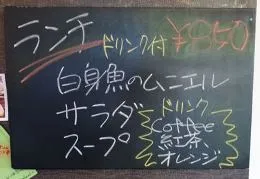 ランチ ドリンク付 ¥850
白身魚のムニエル
サラダ
スープ
ドリンク
Coffee
紅茶
オレンジ